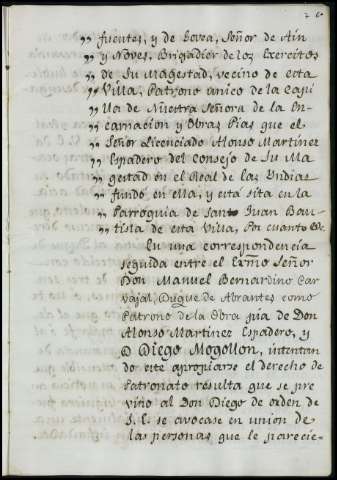 „ fuentes, y de Lovea, Señor de Ain
„ y Noves, Brigadier de los Exercitos
„ de Su Magestad, vecino de esta
„ Villa, Patrono unico de la Capi
„ lla de Nuestra Señora de la En-
„ carnacion y Obras Pias que el
„ Señor Licenciado Alonso Martinez
„ Espadero del consejo de Su Ma
„ gestad en el Real de las Yndias
„ fundó en ella, y está sita en la
„ Parroquia de Santo Juan Bau-
„ tista de esta Villa, Por cuanto
En una correspondencia
seguida entre el Exmo Señor
Don Manuel Bernardino Car
vajal, Duque de Abrantes como
Patrono de la Obra pia de Don
Alonso Martinez Espadero, y
D. Diego Mogollon, intentan
do este apropiarse el derecho de
Patronato resulta que se pre
vino al Don Diego de orden de
S. E. se avocase en union de
las personas que le parecie-